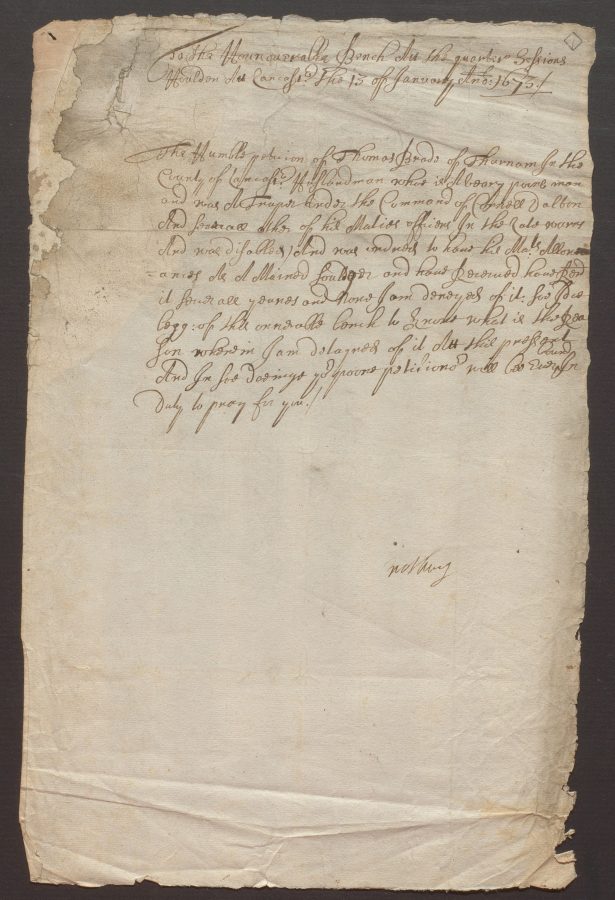 To The Honnouerable Bench Att the quarter Sessions
Houlden Att Lancastr The 13 of January Ano: 1673/
The Humble peticion of Thomas Brade of Thurnam In the
County of Lancastr Husbandman who is A veary poore man
and was A Truper under the Command of Cornell Dalton
And seuerall other of his Maties officers In the late warrs
And was disabled, And was ordred to have his Maties Allow
=ances As A Maimed Souldger and have Received
it seuerall yeares and now I am deneyed of it: soe I doe
begg: of this onnerable bench to Know what is the Rea
son wherein I am delayned of it Att this present
And In soe doeinge yor poore peticionr will bee ever In
Duty to pray for you /
nothing